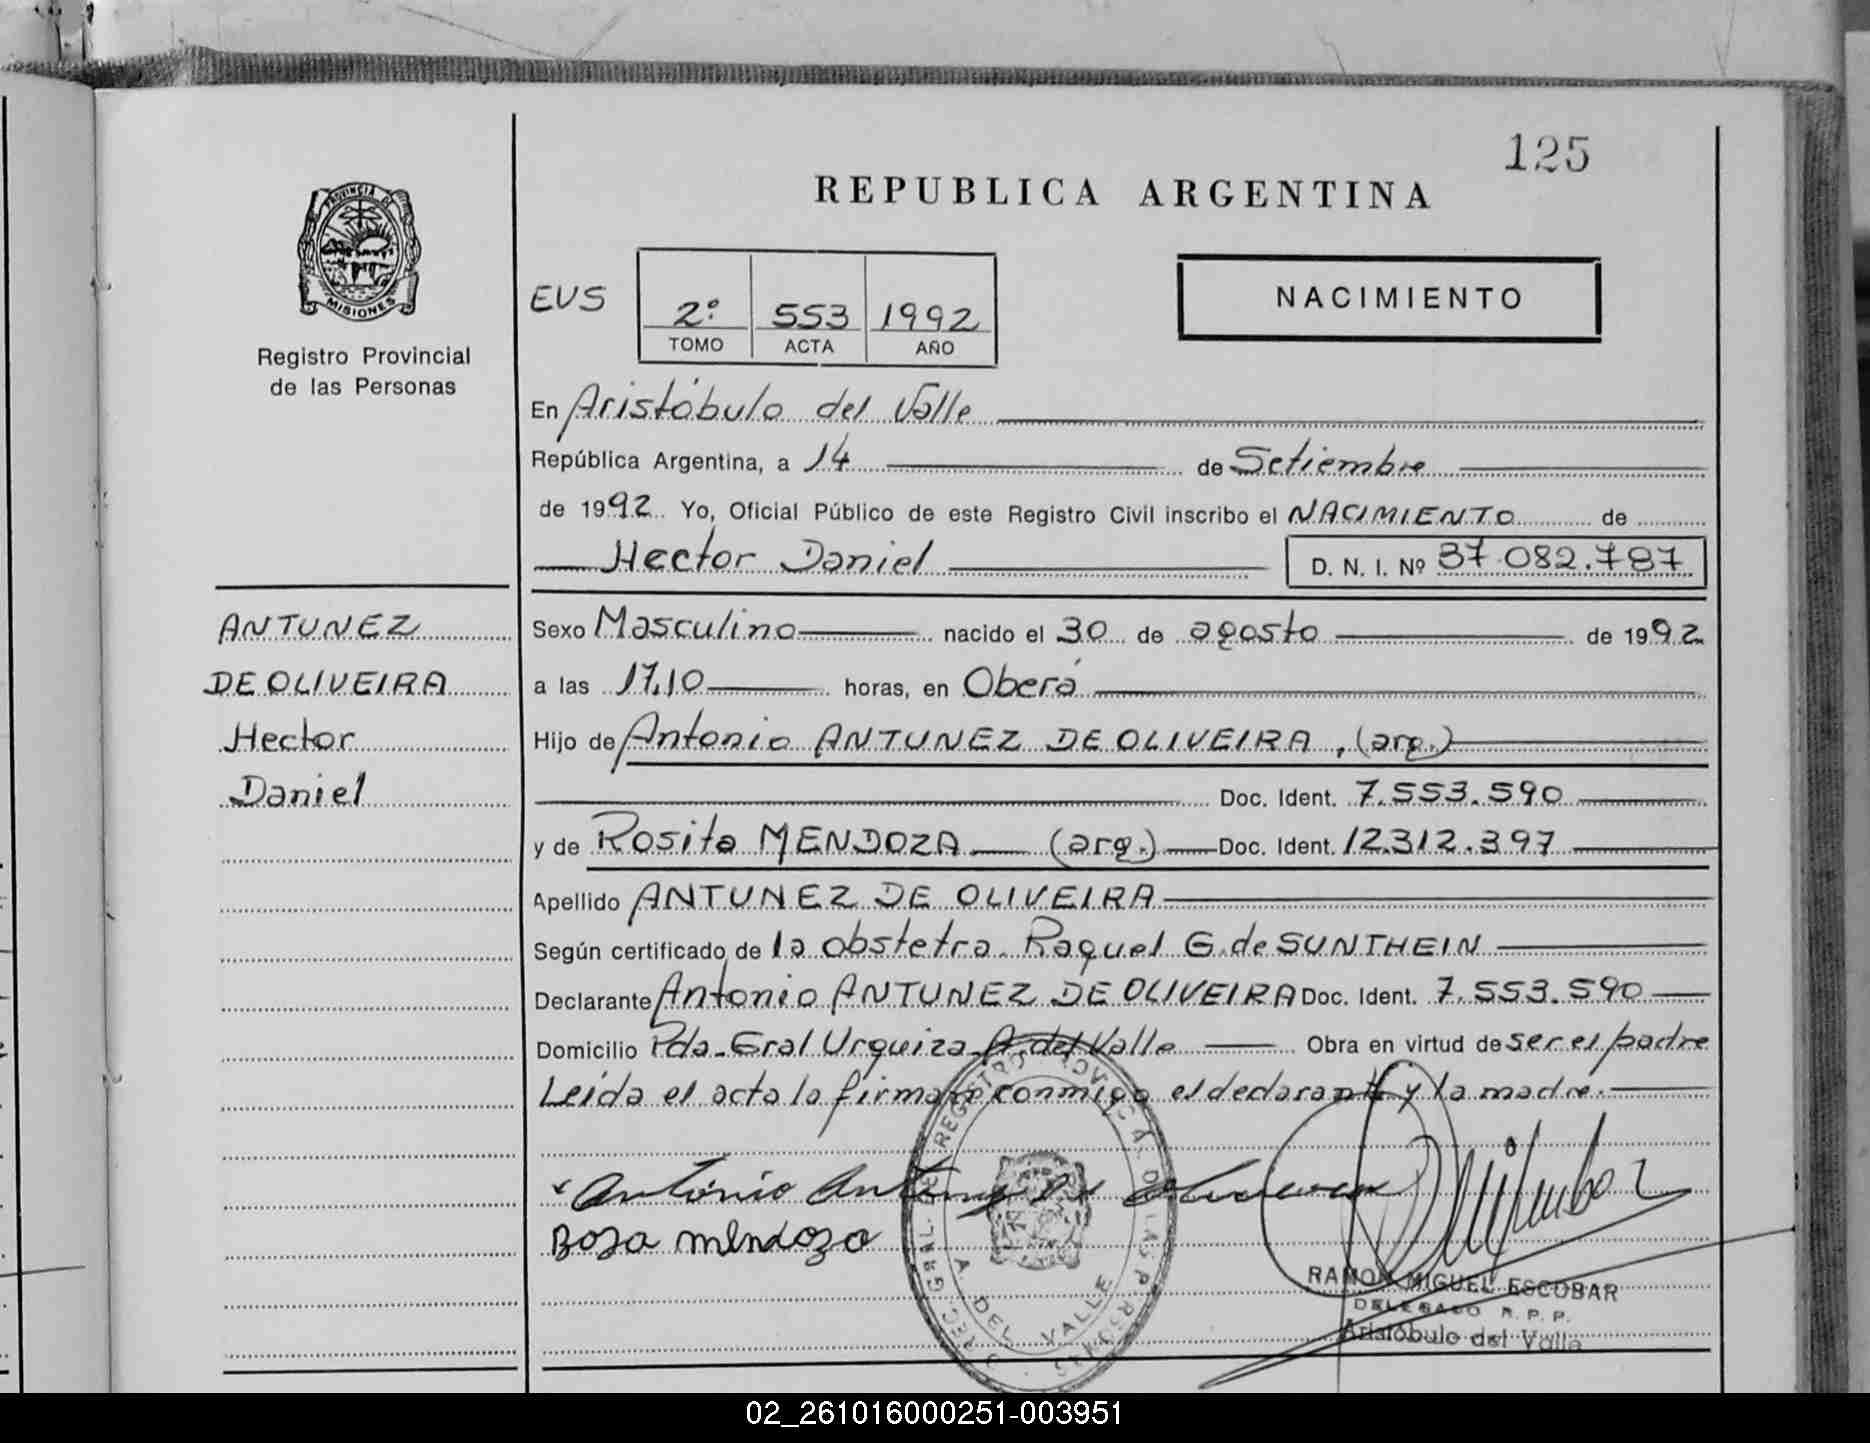 125
REPUBLICA ARGENTINA
PROVINCIA DE
MISIONES
Registro Provincial
de las Personas
EUS
2º 553 1992
TOMO ACTA AÑO
NACIMIENTO
En Aristóbulo del Valle
República Argentina, a 14 de Setiembre
de 1992 Yo, Oficial Público de este Registro Civil inscribo el NACIMIENTO de
Hector Daniel D. N. I. Nº 37.082.787
ANTUNEZ
DE OLIVEIRA
Hector
Daniel
Sexo Masculino nacido el 30 de agosto de 1992
a las 17,10 horas, en Oberá
Hijo de Antonio ANTUNEZ DE OLIVEIRA, (arg.)
Doc. Ident. 7.553.590
y de Rosita MENDOZA (arg.) Doc. Ident. 12.312.397
Apellido ANTUNEZ DE OLIVEIRA
Según certificado de la obstetra. Raquel G. de SUNTHEIN
Declarante Antonio ANTUNEZ DE OLIVEIRA Doc. Ident. 7.553.590
Domicilio Pda. Gral Urquiza A. del Valle Obra en virtud de ser el padre
Leida el acta la firman conmigo el declarante y la madre.
António Antunez de Oliveira
Roza mendoza
A. DEL VALLE
RAMON MIGUEL ESCOBAR
DELEGADO R. P. P.
Aristóbulo del Valle
02_261016000251-003951